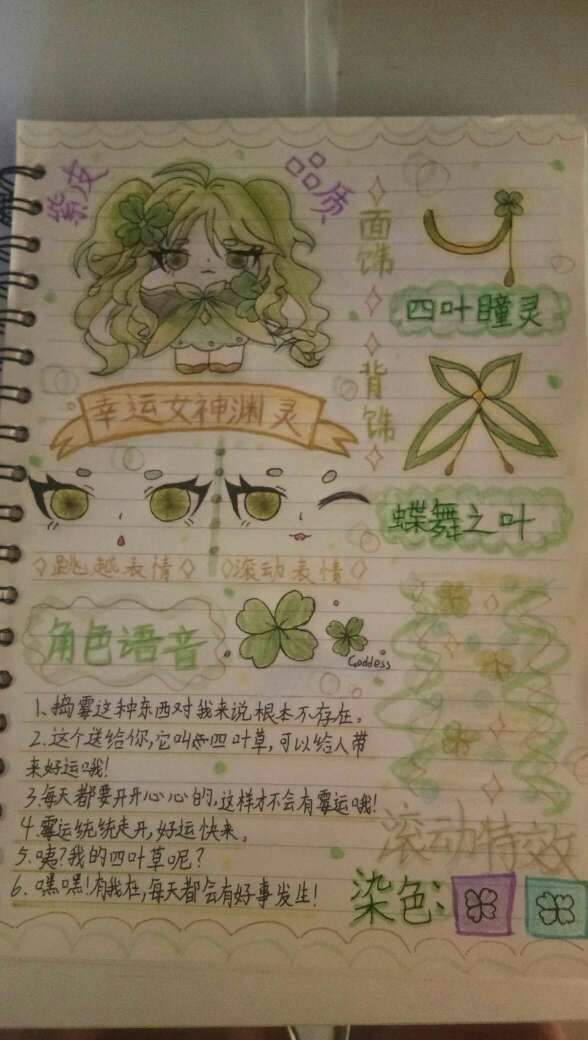 紫皮
品质
面饰
四叶瞳灵
幸运女神渊灵
背饰
蝶舞之叶
跳越表情
滚动表情
角色语音
Goddess
1.捣霉这种东西对我来说根本不存在。
2.这个送给你,它叫四叶草,可以给人带
来好运哦!
3.每天都要开开心心的,这样才不会有霉运哦!
4.霉运统统走开,好运快来。
5.咦?我的四叶草呢?
6.嘿嘿!有我在,每天都会有好事发生!
滚动特效
染色: